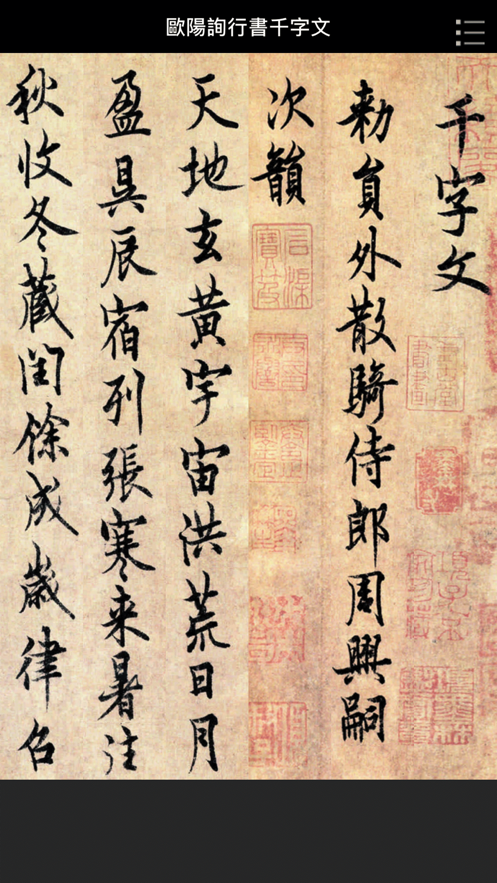 歐陽詢行書千字文
千字文
勅員外散騎侍郎周興嗣
次韻
天地玄黃宇宙洪荒日月
盈昃辰宿列張寒来暑往
秋收冬藏閏餘成歲律召